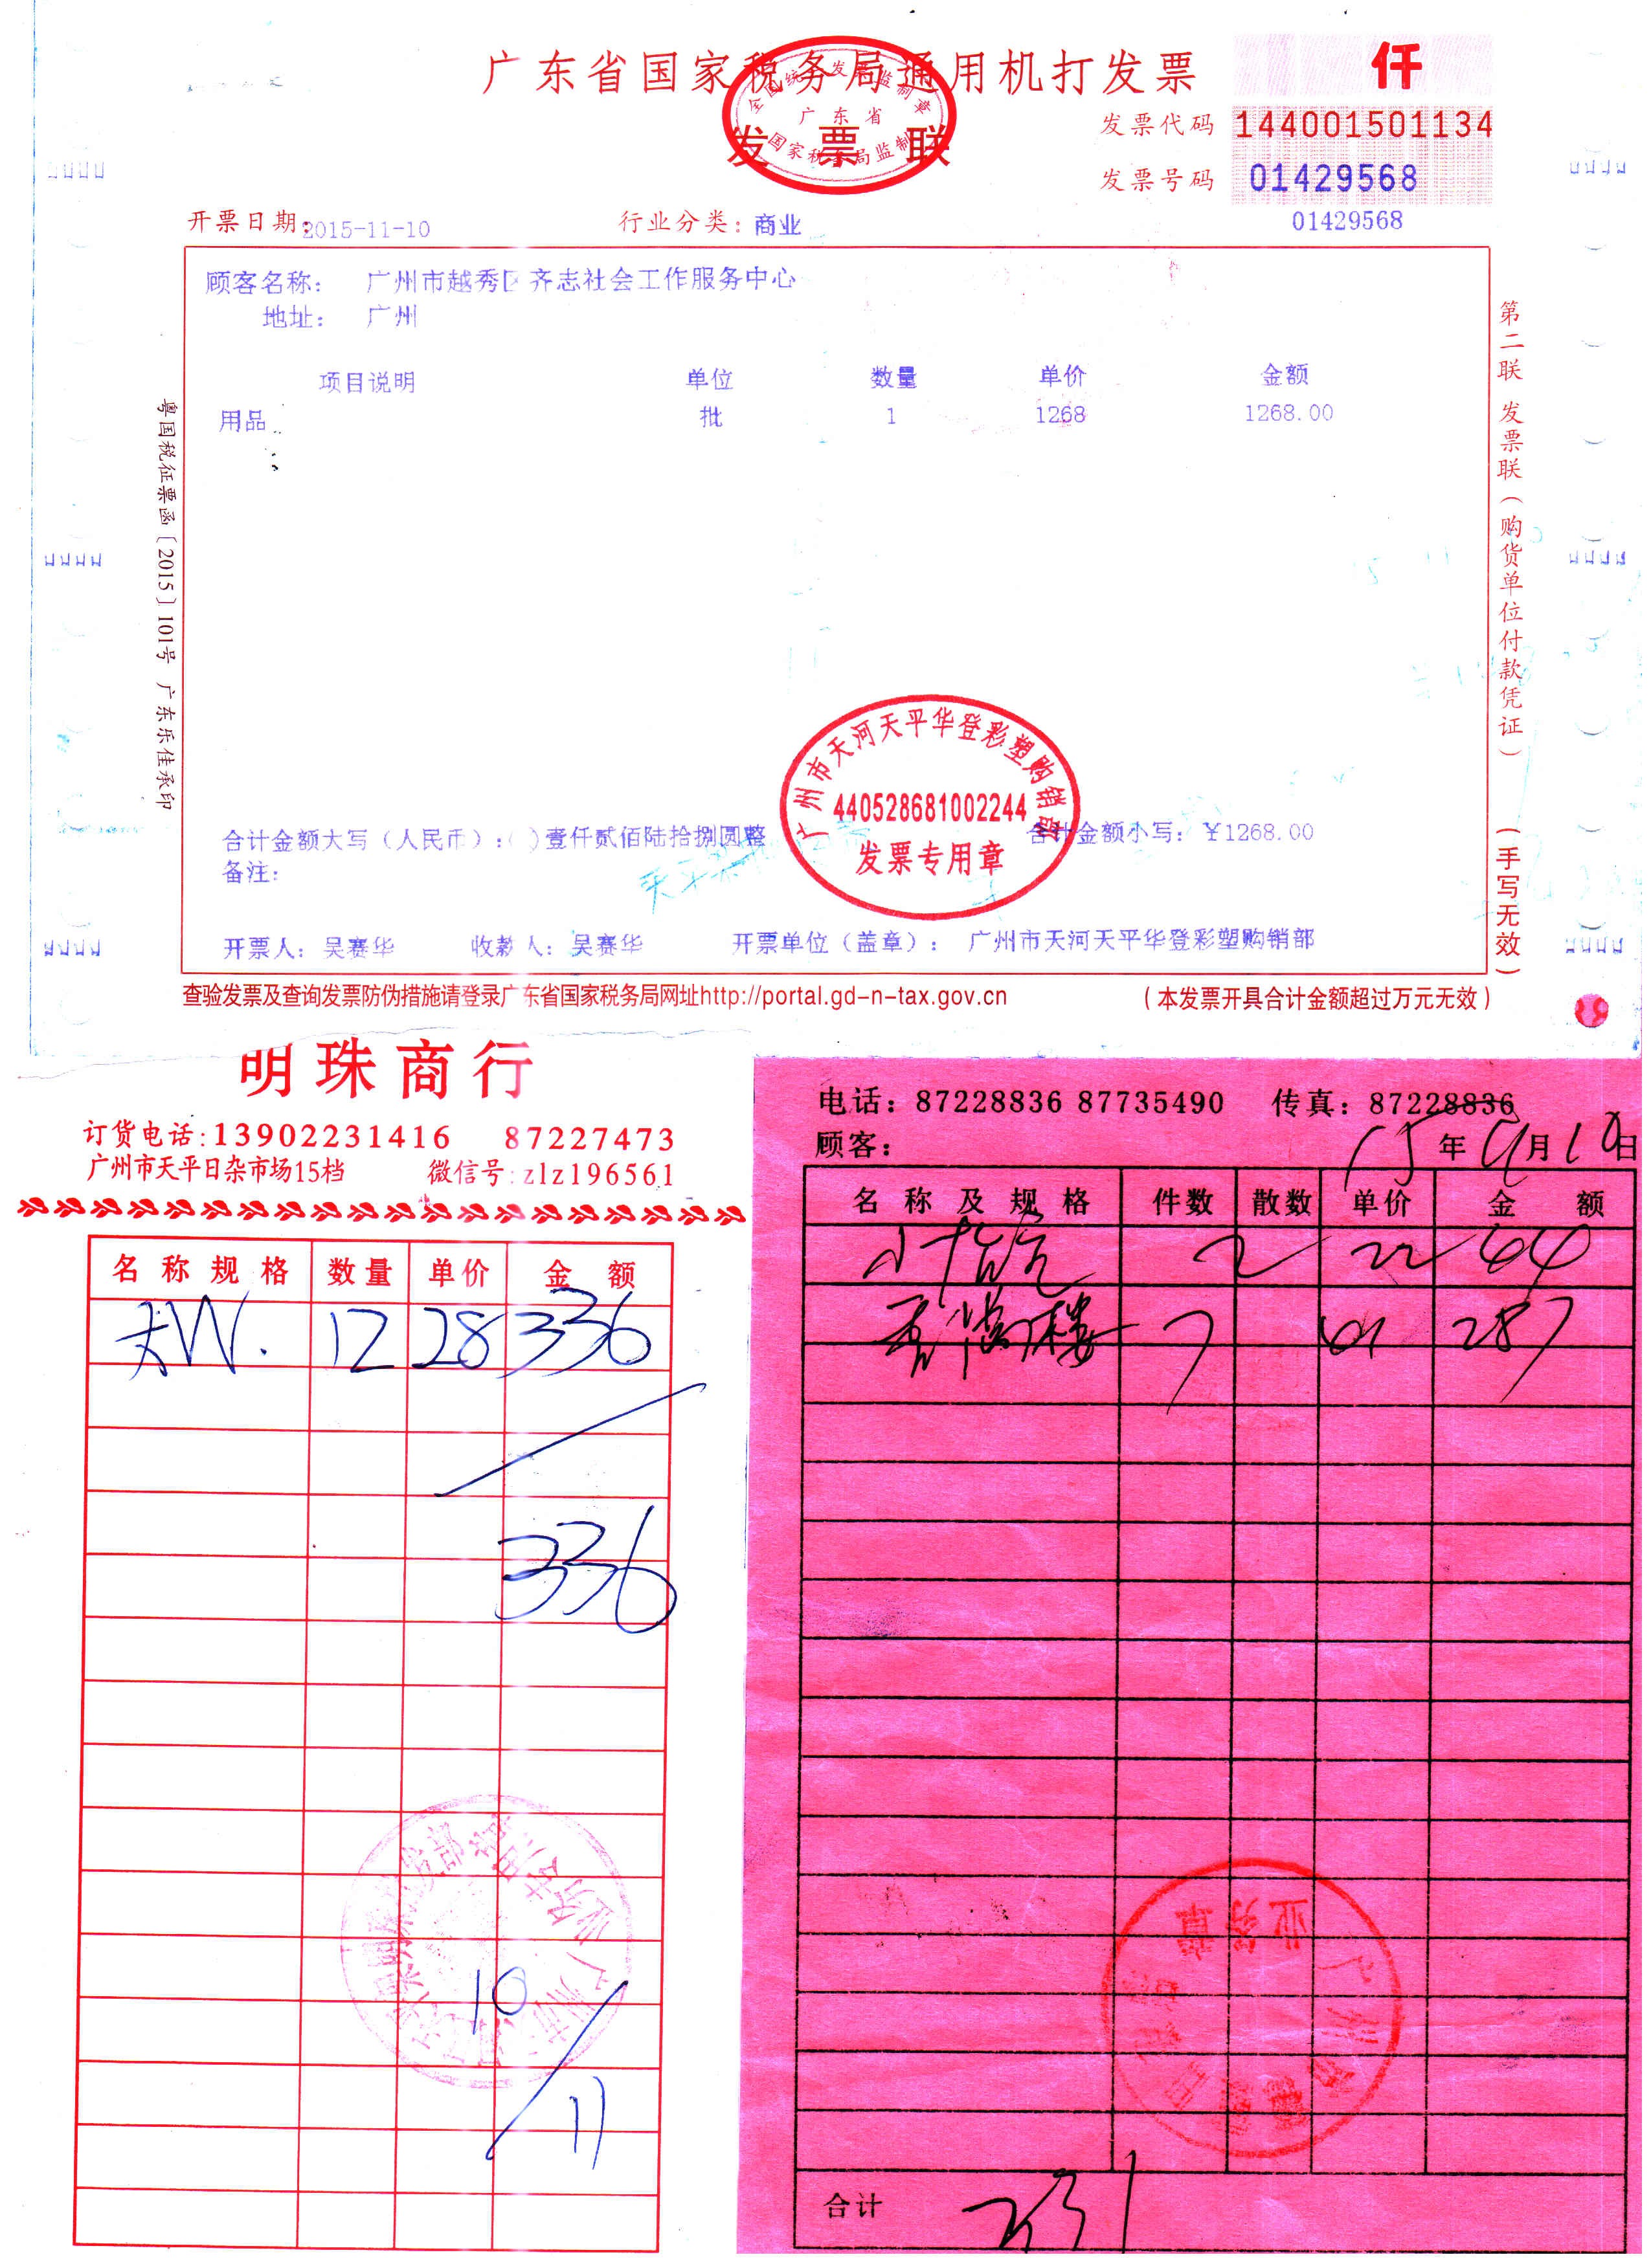 广东省国家税务局通用机打发票
仟
全国统一发票监制章
广东省
国家税务局监制
发票联
发票代码 144001501134
发票号码 01429568
01429568
开票日期:2015-11-10 行业分类:商业
顾客名称: 广州市越秀区齐志社会工作服务中心
地址: 广州
项目说明 单位 数量 单价 金额
用品 批 1 1268 1268.00
粤国税征票函〔2015〕101号 广东乐佳承印
第二联 发票联(购货单位付款凭证) (手写无效)
广州市天河天平华登彩塑购销部
440528681002244
发票专用章
合计金额大写(人民币):( )壹仟贰佰陆拾捌圆整 合计金额小写: ¥1268.00
备注:
开票人: 吴赛华 收款人: 吴赛华 开票单位(盖章): 广州市天河天平华登彩塑购销部
查验发票及查询发票防伪措施请登录广东省国家税务局网址http://portal.gd-n-tax.gov.cn (本发票开具合计金额超过万元无效)
明珠商行
订货电话:13902231416 87227473
广州市天平日杂市场15档 微信号:zlz196561
名称规格 数量 单价 金额
12 28 336
336
10/11
电话: 87228836 87735490 传真: 87228836
顾客: 15年11月10日
名称及规格 件数 散数 单价 金额
2 22 44
7 41 287
业务章
合计 331